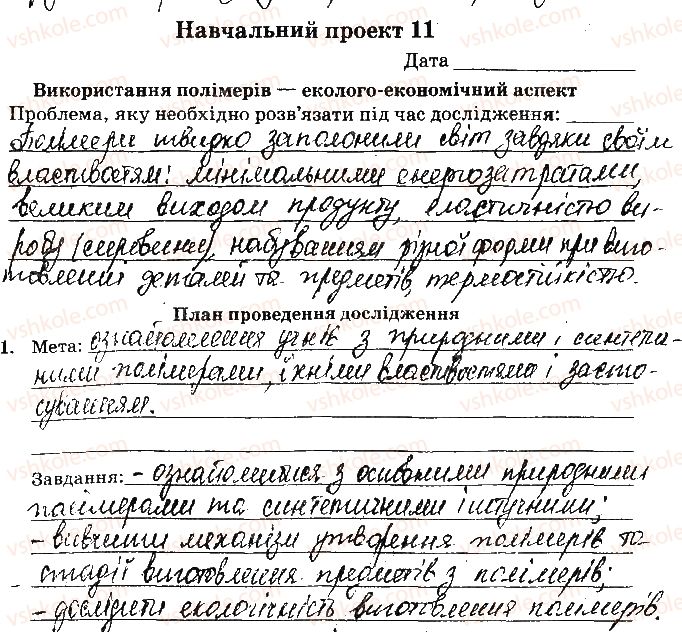 Навчальний проект 11
Дата
Використання полімерів — еколого-економічний аспект
Проблема, яку необхідно розв'язати під час дослідження:
Полімери швидко заполонили світ завдяки своїм
властивостям: мінімальними енергозатратами,
великим виходом продукту, еластичністю ви-
робу (сировини), набуванням різної форми при виго-
товленні деталей та предметів, термостійкістю.
План проведення дослідження
1. Мета: ознайомлення учнів з природними і синтетич-
ними полімерами, їхніми властивостями і засто-
суванням.
Завдання: - ознайомитися з основними природними
полімерами та синтетичними і штучними;
- вивчити механізм утворення полімерів та
стадії виготовлення предметів з полімерів;
- дослідити екологічність виготовлення полімерів.
vshkole.com